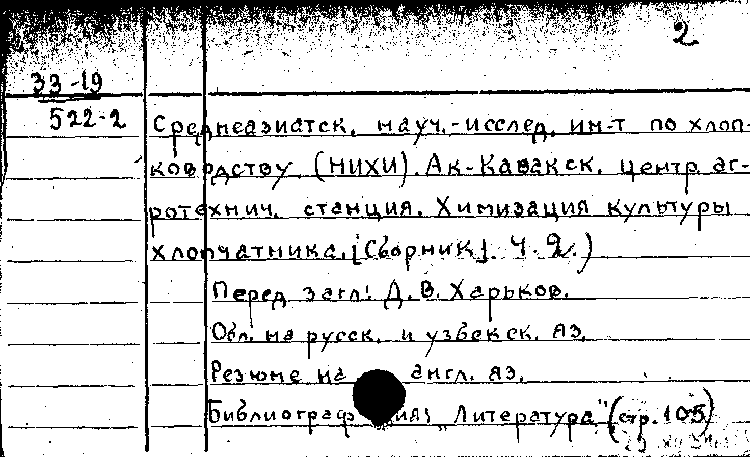 2
33-19
522-2
Среднеазиатск. науч.-исслед. ин-т по хлоп-
ководству (НИХИ). Ак-Кавакск. центр. аг-
ротехнич. станция. Химизация культуры
хлопчатника. [Сборник]. Ч. 2.)
Перед загл: Д. В. Харьков.
Обл. на русск. и узбекск. яз.
Резюме на англ. яз.
Библиография: „Литература" (стр. 105)